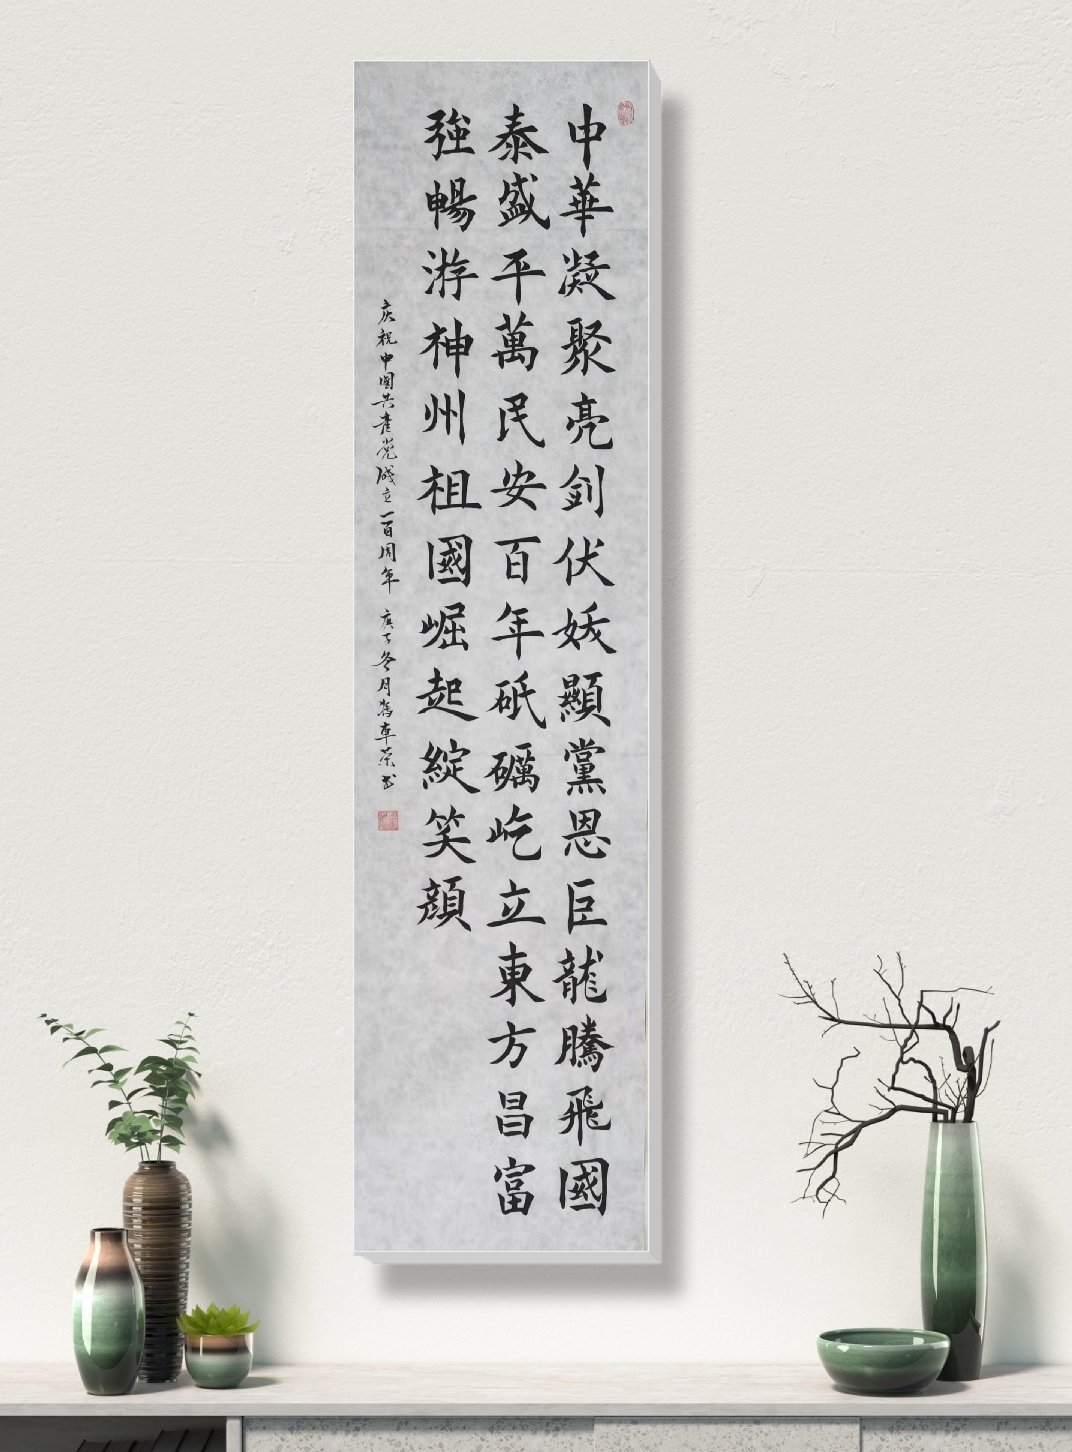 中華凝聚亮釗伏妖顯黨恩巨龍騰飛國
泰盛平萬民安百年砥礪屹立東方昌富
強暢游神州祖國崛起綻笑顔
庆祝中國共產党成立一百周年 庚子冬月